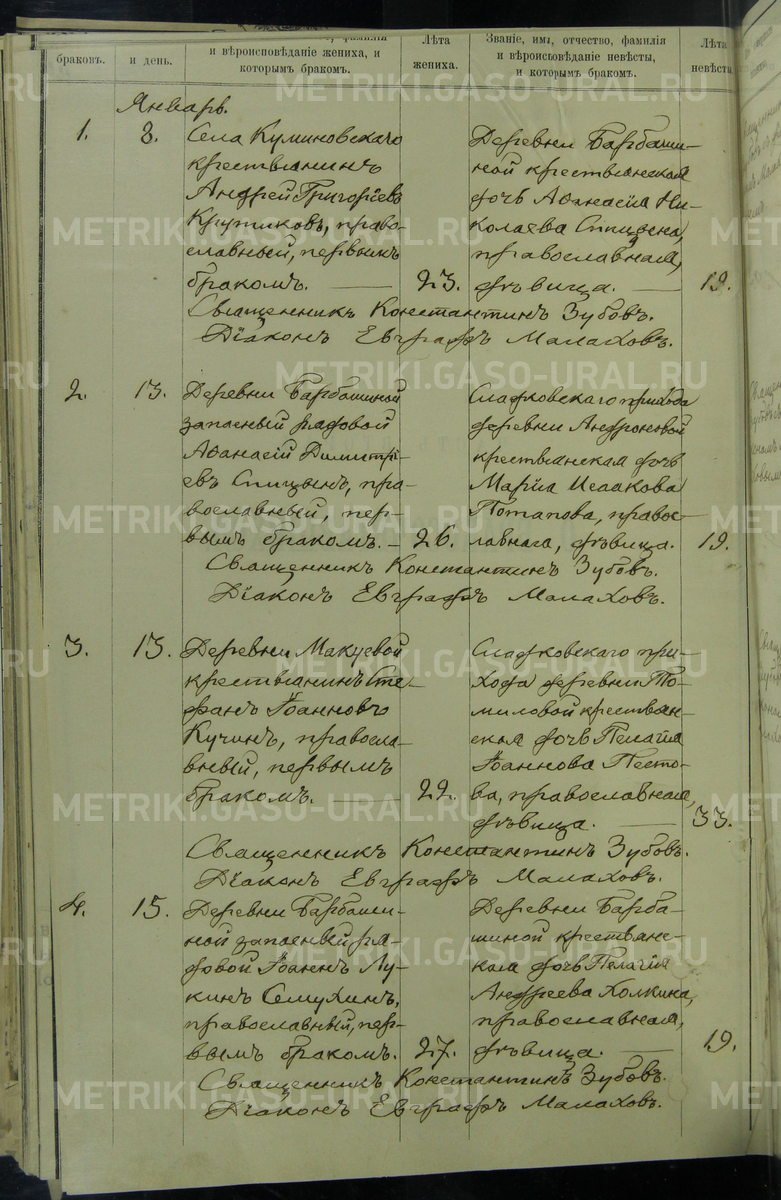 браковъ.
и день.
фамилія
и вѣроисповѣданіе жениха, и
которымъ бракомъ.
Лѣта
жениха.
Званіе, имя, отчество, фамилія
и вѣроисповѣданіе невѣсты,
и которымъ бракомъ.
Лѣта
невѣсты
Январь.
1. 8.
Села Куминовскаго
крестьянинъ
Андрей Григоріевъ
Крутиковъ, право-
славный, первымъ
бракомъ. — 23.
Деревни Барбаши-
ной крестьянская
дочь Аѳанасія Ни-
колаева Спицына,
православная,
дѣвица. — 19.
Священникъ Константинъ Зубовъ.
Діаконъ Евграфъ Малаховъ.
2. 13.
Деревни Барбашиной
запасный рядовой
Аѳанасій Димитрі-
евъ Спицынъ, пра-
вославный, пер-
вымъ бракомъ. — 26.
Сладковскаго прихода
деревни Андроновой
крестьянская дочь
Марія Исаакова
Потапова, правос-
лавная, дѣвица. 19.
Священникъ Константинъ Зубовъ.
Діаконъ Евграфъ Малаховъ.
3. 13.
Деревни Макуевой
крестьянинъ Сте-
фанъ Іоанновъ
Кучинъ, правосла-
вный, первымъ
бракомъ. — 22.
Сладковскаго при-
хода деревни То-
миловой крестьян-
ская дочь Пелагія
Іоаннова Песто-
ва, православная,
дѣвица. — 33.
Священникъ Константинъ Зубовъ.
Діаконъ Евграфъ Малаховъ.
4. 15.
Деревни Барбаши-
ной запасный ря-
довой Іоаннъ Лу-
кинъ Семухинъ,
православный, пер-
вымъ бракомъ. 27.
Деревни Барба-
шиной крестьянс-
кая дочь Пелагія
Андреева Холкина,
православная,
дѣвица. — 19.
Священникъ Константинъ Зубовъ.
Діаконъ Евграфъ Малаховъ.
METRIKI.GASO-URAL.RU